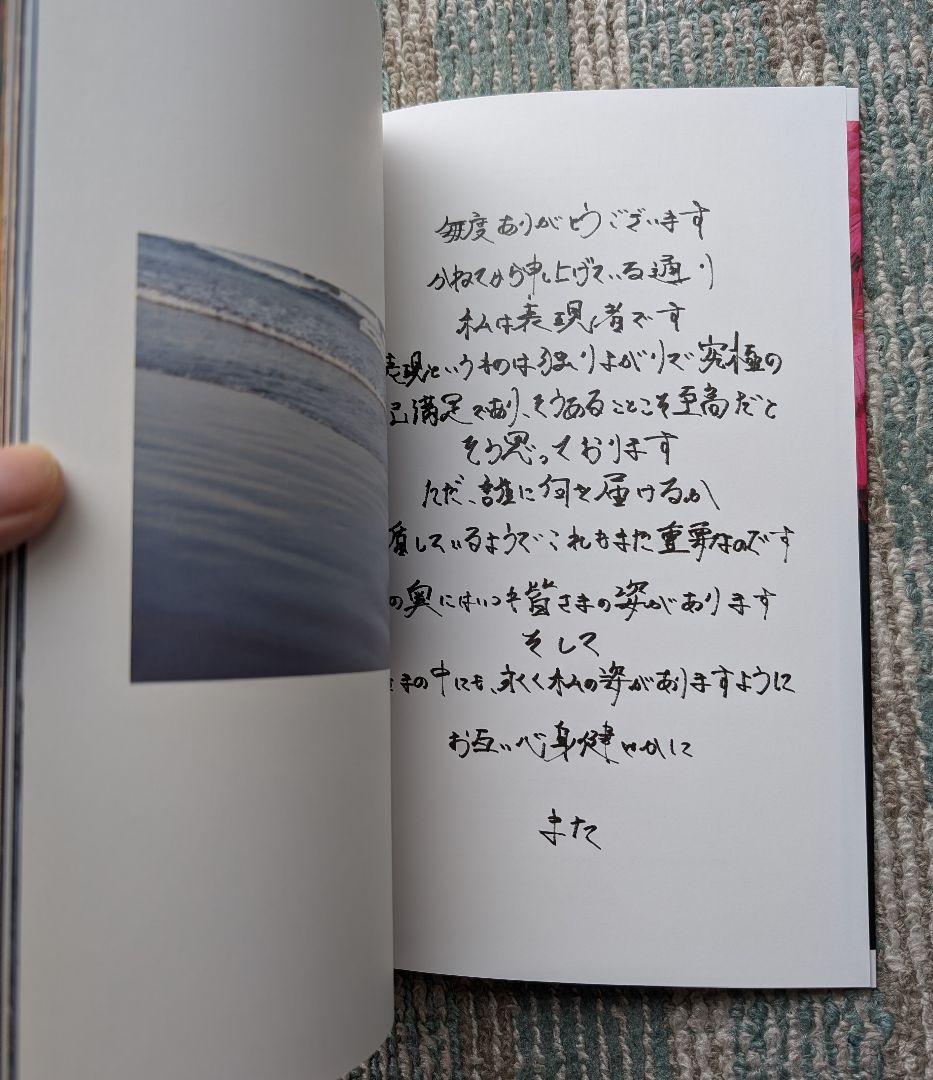 毎度ありがとうございます
かねてから申し上げている通り
私は表現者です
表現というものは独りよがりで究極の
己満足であり、そうあることこそ至高だと
そう思っております
ただ、誰に何を届けるか
盾しているようでこれもまた重要なのです
の奥にはいつも皆さまの姿があります
そして
さまの中にも、永く私の姿がありますように
お互い心身健やかに
また